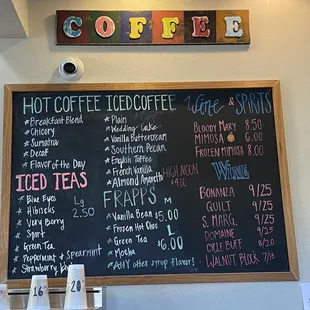 COFFEE
HOT COFFEE
* Breakfast Blend
* Chicory
* Sumatra
* Decaf
* Flavor of the Day
ICED TEAS
* Blue Eyes
* Hibiscus
* Very Berry
* Sport
* Green Tea
* Peppermint + Spearmint
* Strawberry
Lg
2.50
ICED COFFEE
* Plain
* Wedding Cake
* Vanilla Buttercream
* Southern Pecan
* English Toffee
* French Vanilla
* Almond Amaretto
FRAPPS
* Vanilla Bean
* Frozen Hot Choc
* Green Tea
* Mocha
* ANY other syrup flavor!
M
$5.00
L
$6.00
Wine & SPIRITS
BLOODY MARY 8.50
MIMOSA 6.00
FROZEN MIMOSA 8.00
HIGH NOON
$9.00
WINE
BONANZA 9/25
QUILT 9/25
S. MARG. 9/25
DOMAINE 9/25
BELLE BUFF 8/20
WALNUT BLOCK 7/18
16
20